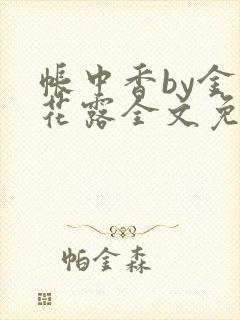 帳中香by金
花露全文免
帕金森